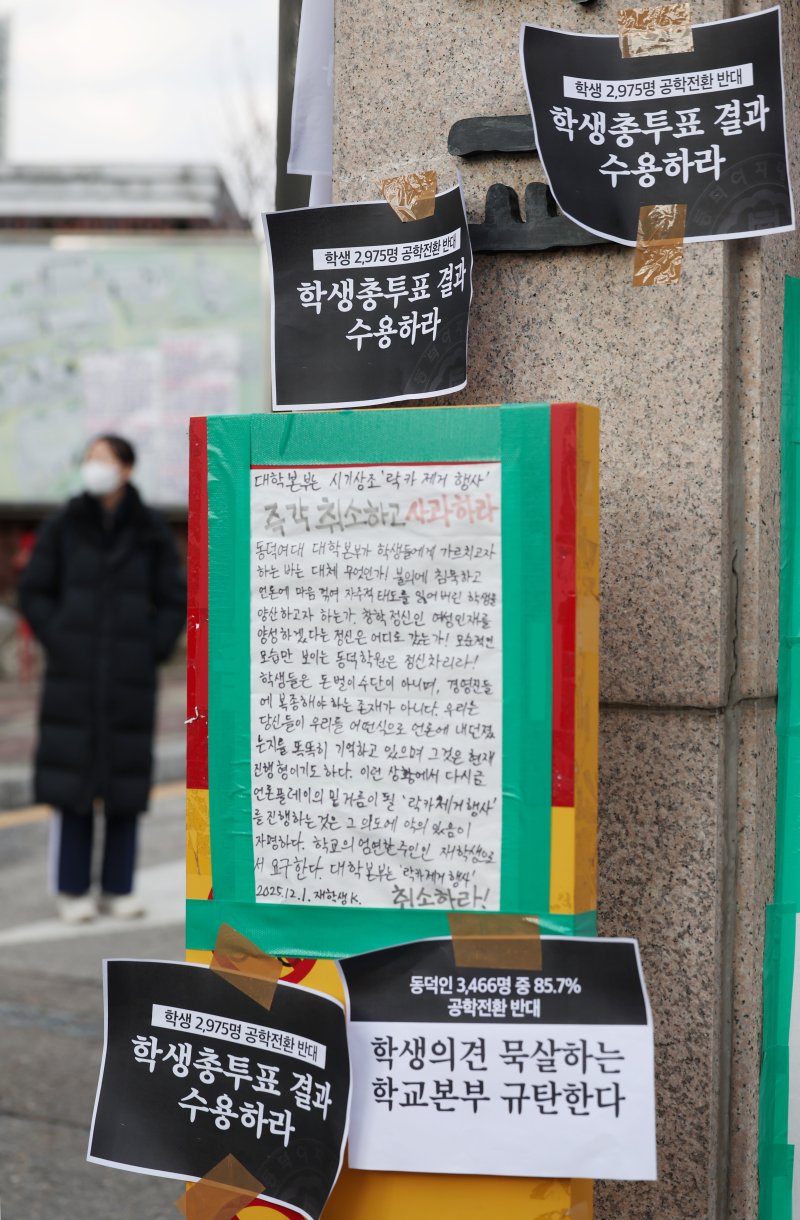 학생 2,975명 공학전환 반대
학생총투표 결과
수용하라
학생 2,975명 공학전환 반대
학생총투표 결과
수용하라
대학본부는 시기상조 '락카 제거 행사'
즉각 취소하고 사과하라
동덕여대 대학본부가 학생들에게 가르치고자
하는 바는 대체 무엇인가! 불의에 침묵하고
언론에 마음 꺾여 자주적 태도를 잃어버린 학생을
양산하고자 하는가. 창학정신인 여성인재를
양성하겠다는 정신은 어디로 갔는가! 모순적인
모습만 보이는 동덕학원은 정신차리라!
학생들은 돈벌이수단이 아니며, 경영진들
에 복종해야 하는 존재가 아니다. 우리는
당신들이 우리를 어떤식으로 언론에 내던졌
는지를 똑똑히 기억하고 있으며 그것은 현재
진행형이기도 하다. 이런 상황에서 다시금
언론플레이의 밑거름이 될 '락카제거행사'
를 진행하는 것은 그 의도에 악의 있음이
자명하다. 학교의 엄연한 주인인 재학생으로
서 요구한다. 대학본부는 '락카제거 행사'
2025.12.1. 재학생 K. 취소하라!
학생 2,975명 공학전환 반대
학생총투표 결과
수용하라
동덕인 3,466명 중 85.7%
공학전환 반대
학생의견 묵살하는
학교본부 규탄한다